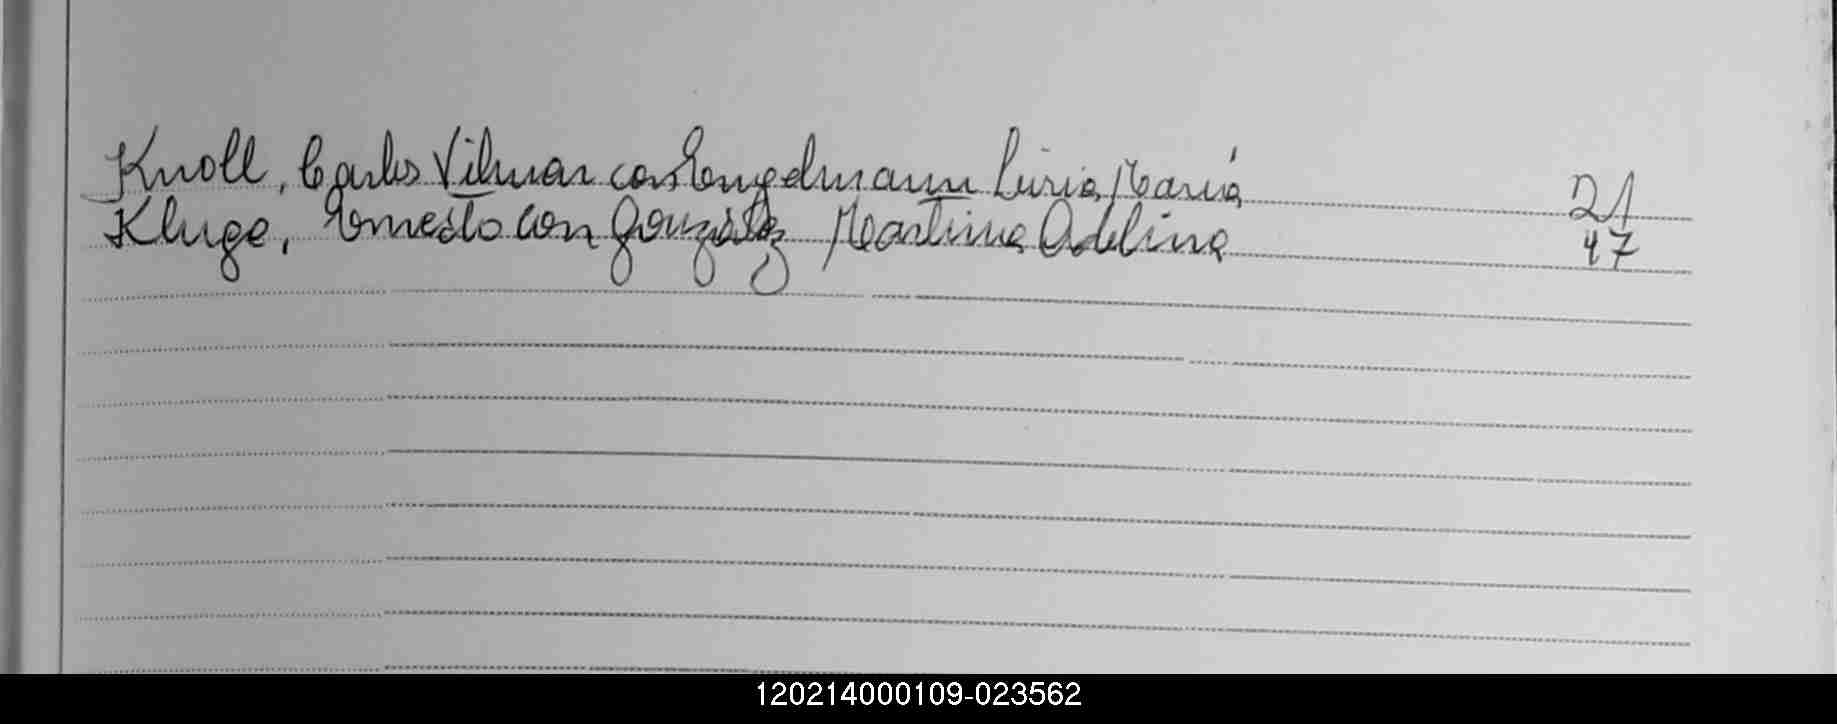 Knoll, Carlos Vilmar con Engelmann Liria María 21
Kluge, Ernesto con González Martina Adelina 47
120214000109-023562